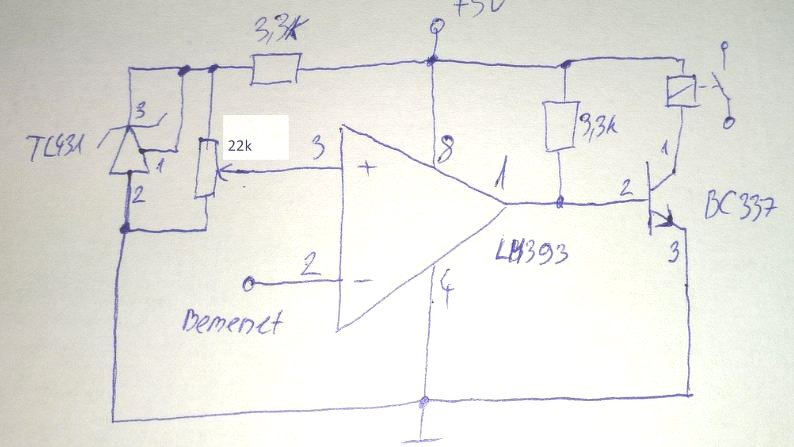 +5V
3,3k
3
TL431
1
2
22k
3
+
8
1
3,3k
1
2
BC337
3
LM393
2
-
4
Bemenet